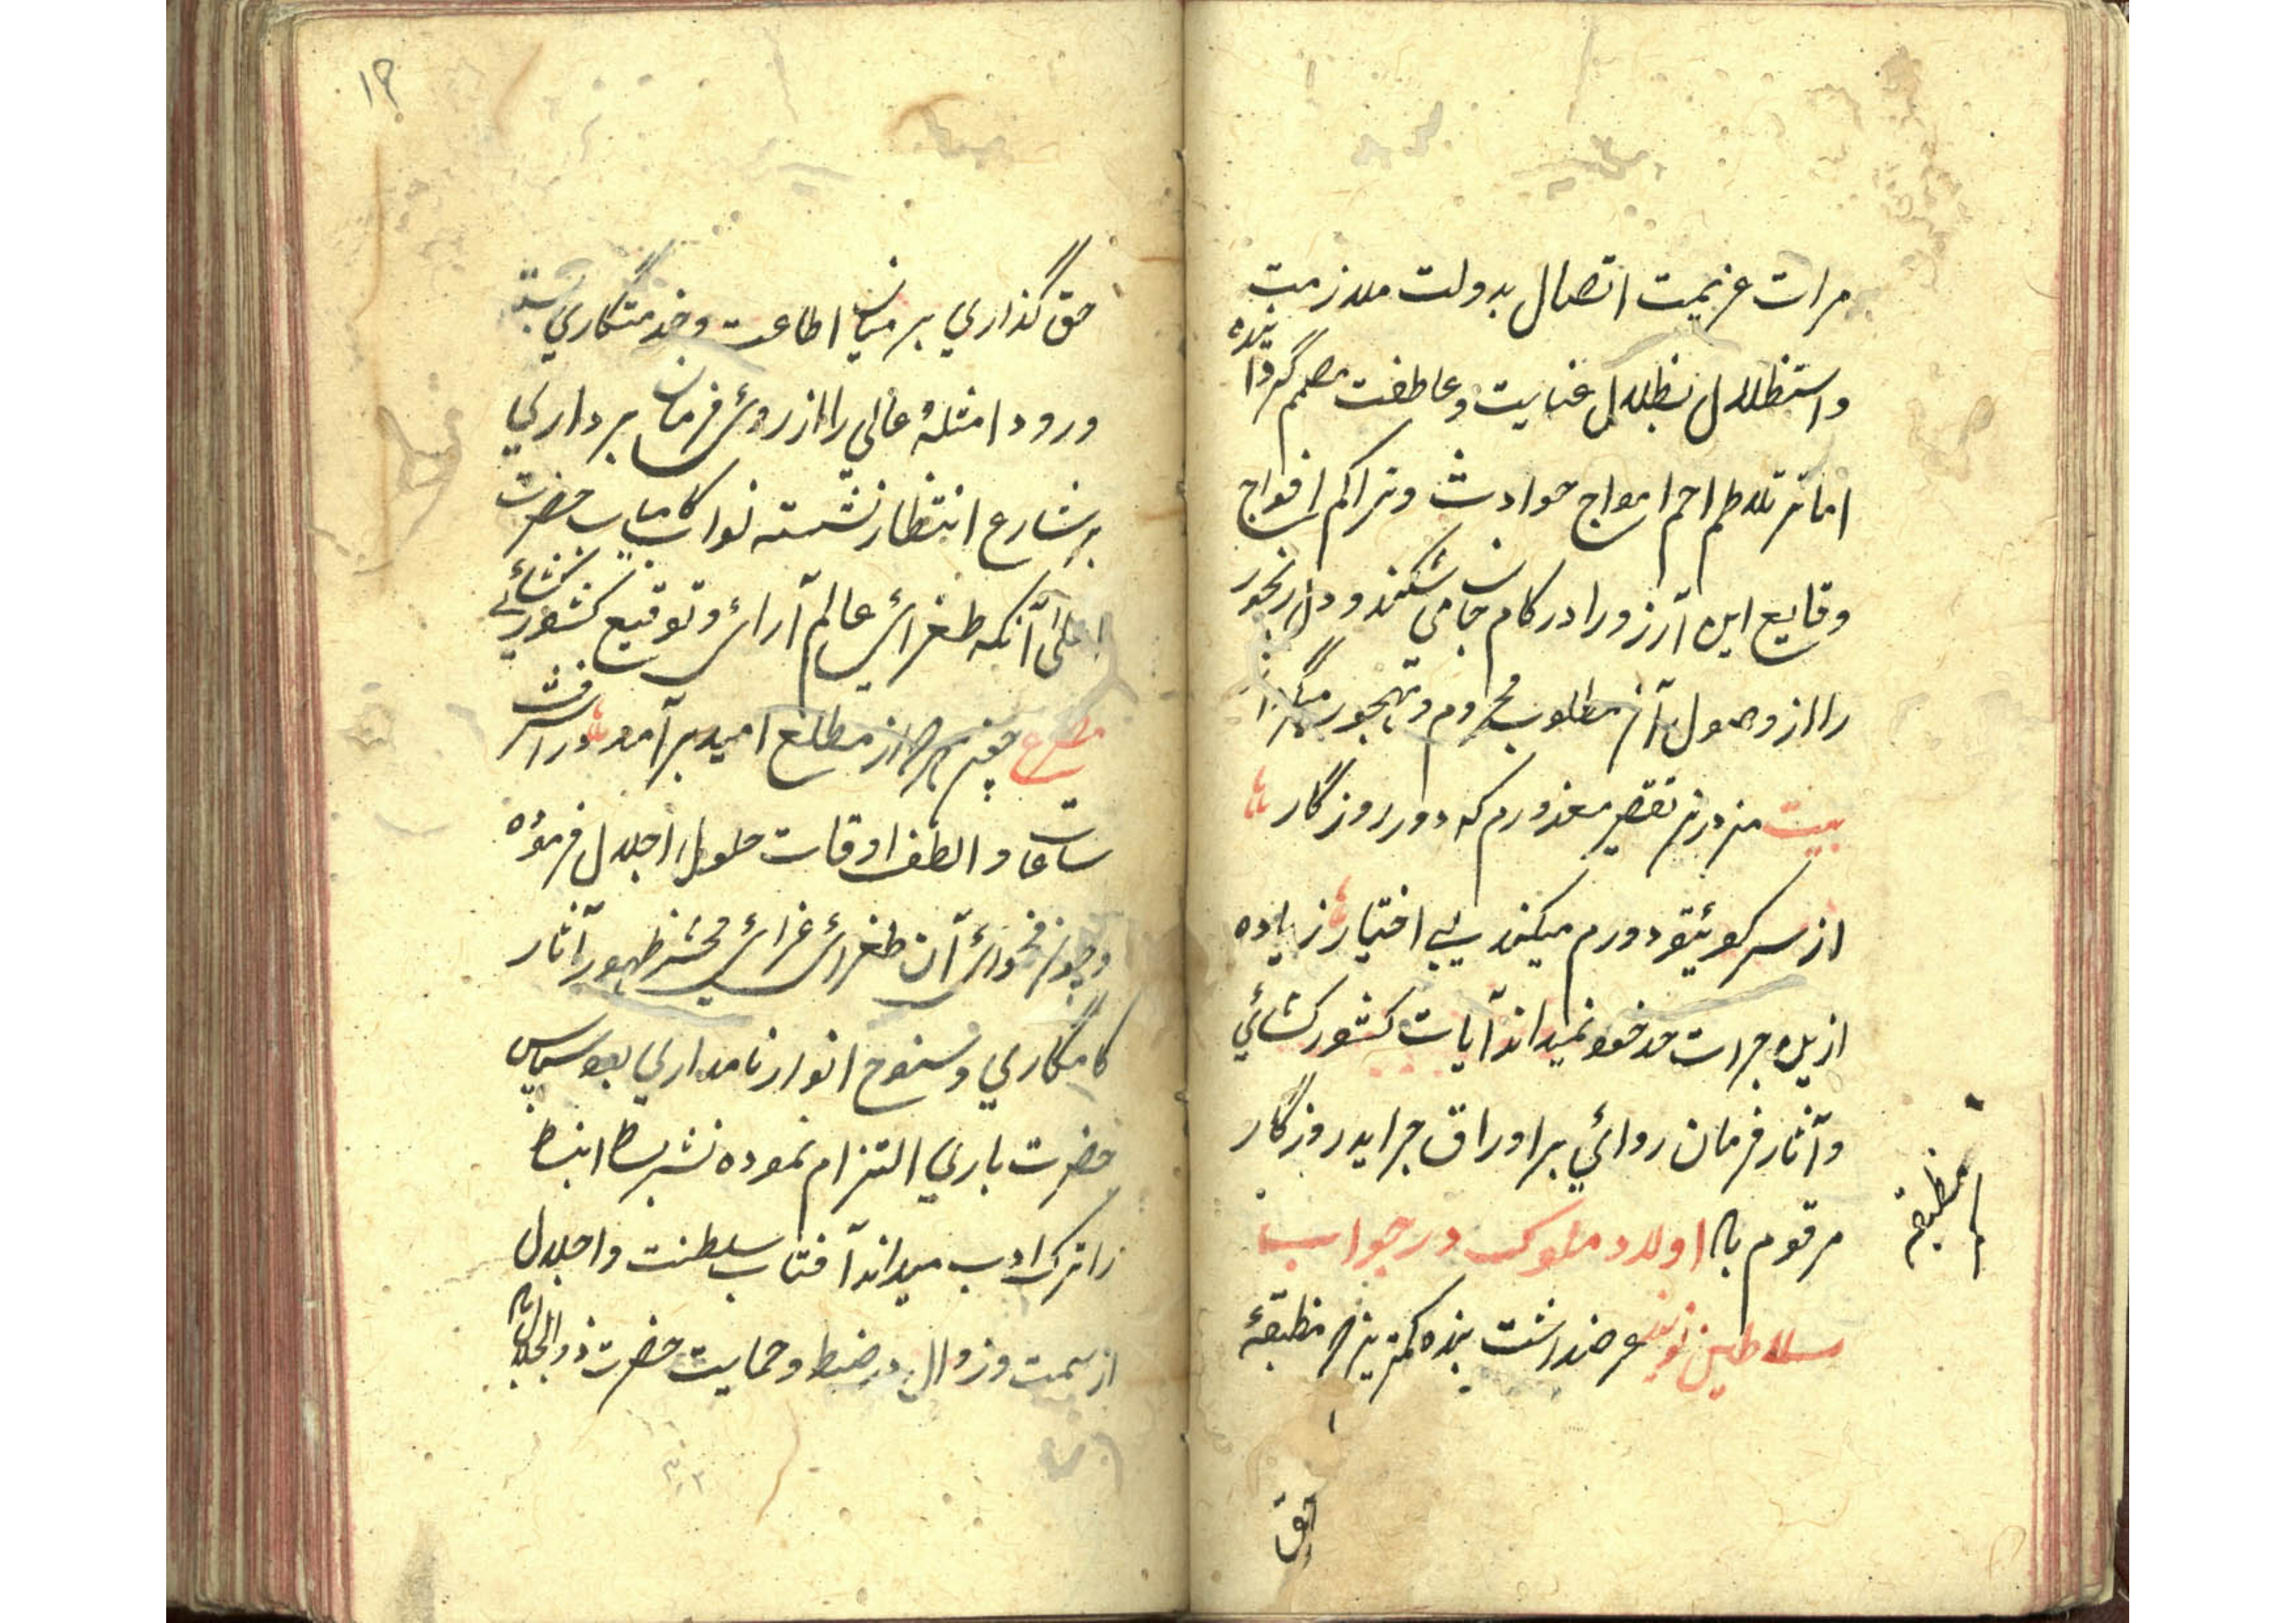 مرات عزیمت اتصال بدولت ملازمت
واستظلال بظلال عنایت وعاطفت مصمم گردانیده
اما تلاطم امواج حوادث وتراکم افواج
وقایع این آرزو را در کام جان می شکند و دل رنجور
را از وصول آن مطلوب محروم و مهجور میگرداند
بیت من درین تقصیر معذورم که دور روزگار
از سر کوئیتو دورم میکند بی اختیار زیاده
ازین جرات حد خود نمیداند آیات کشور کشائي
وآثار فرمان روائي بر اوراق جراید روزگار
مرقوم باد اولاد ملوک در جواب
سلاطین نویسد عرضداشت بنده کمترین منطبقهٔ
منطبقه
حق
۱۲
حق گذاري بر میان اطاعت وخدمتگاري بسته
ورود امثلهٔ عالي را از روئ فرمان برداري
بر شارع انتظار نشسته نواب کامیاب حضرت
اعلی آنکه طغرائ عالم آرائ وتوقیع کشور کشائي
مصرع از مطلع امید برآمد در اشرف
ساعات و الطف اوقات حلول اجلال فرموده
وچون فحوائ آن طغرائ غرائ مخبر ظهور آثار
کامگاري وسنوح انوار نامداري بود سپاس
حضرت باري التزام نموده نشر بساط انبساط
را ترک ادب میداند آفتاب سلطنت واجلال
از سمت وزوال در ضبط وحمایت حضرت ذوالجلال باد